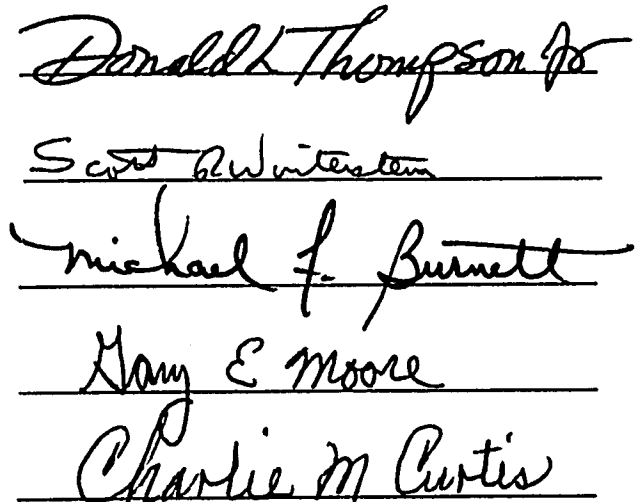 Donald L Thompson Jr
Scott R Winterstein
Michael F. Burnett
Gary E Moore
Charlie M Curtis